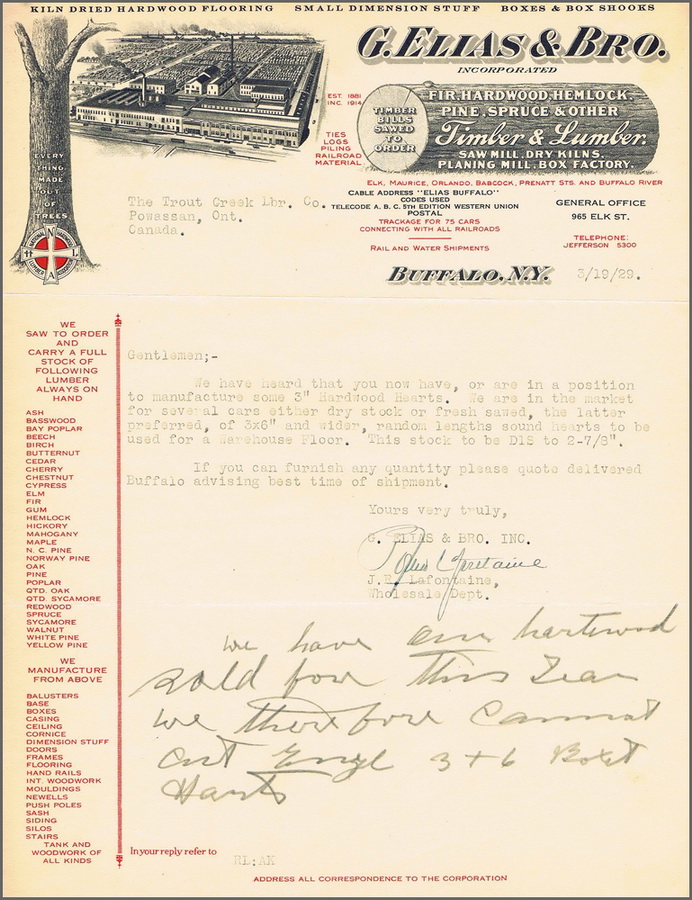 KILN DRIED HARDWOOD FLOORING SMALL DIMENSION STUFF BOXES & BOX SHOOKS
G. ELIAS & BRO.
INCORPORATED
EST. 1881
INC. 1914
TIES
LOGS
PILING
RAILROAD
MATERIAL
TIMBER
BILLS
SAWED
TO
ORDER
FIR, HARDWOOD, HEMLOCK,
PINE, SPRUCE & OTHER
Timber & Lumber.
SAW MILL, DRY KILNS,
PLANING MILL, BOX FACTORY.
EVERY
THING
MADE
OUT
OF
TREES
NATIONAL HARDWOOD
LUMBER ASSOCIATION
N H L A
ELK, MAURICE, ORLANDO, BABCOCK, PRENATT STS. AND BUFFALO RIVER
CABLE ADDRESS "ELIAS BUFFALO"
CODES USED
TELECODE A. B. C. 5TH EDITION WESTERN UNION
POSTAL
TRACKAGE FOR 75 CARS
CONNECTING WITH ALL RAILROADS
RAIL AND WATER SHIPMENTS
GENERAL OFFICE
965 ELK ST.
TELEPHONE:
JEFFERSON 5300
The Trout Creek Lbr. Co.
Powassan, Ont.
Canada.
BUFFALO, N.Y. 3/19/29.
WE
SAW TO ORDER
AND
CARRY A FULL
STOCK OF
FOLLOWING
LUMBER
ALWAYS ON
HAND
ASH
BASSWOOD
BAY POPLAR
BEECH
BIRCH
BUTTERNUT
CEDAR
CHERRY
CHESTNUT
CYPRESS
ELM
FIR
GUM
HEMLOCK
HICKORY
MAHOGANY
MAPLE
N. C. PINE
NORWAY PINE
OAK
PINE
POPLAR
QTD. OAK
QTD. SYCAMORE
REDWOOD
SPRUCE
SYCAMORE
WALNUT
WHITE PINE
YELLOW PINE
WE
MANUFACTURE
FROM ABOVE
BALUSTERS
BASE
BOXES
CASING
CEILING
CORNICE
DIMENSION STUFF
DOORS
FRAMES
FLOORING
HAND RAILS
INT. WOODWORK
MOULDINGS
NEWELLS
PUSH POLES
SASH
SIDING
SILOS
STAIRS
TANK AND
WOODWORK OF
ALL KINDS
Gentlemen;-
We have heard that you now have, or are in a position
to manufacture some 3" Hardwood Hearts. We are in the market
for several cars either dry stock or fresh sawed, the latter
preferred, of 3x6" and wider, random lengths sound hearts to be
used for a Warehouse Floor. This stock to be D1S to 2-7/8".
If you can furnish any quantity please quote delivered
Buffalo advising best time of shipment.
Yours very truly,
G. ELIAS & BRO. INC.
J.E. Lafontaine,
Wholesale Dept.
we have our hartwood
sold fore this Zear
we therefore cannot
cut 3 + 6
Harts
In your reply refer to
RL:AK
ADDRESS ALL CORRESPONDENCE TO THE CORPORATION